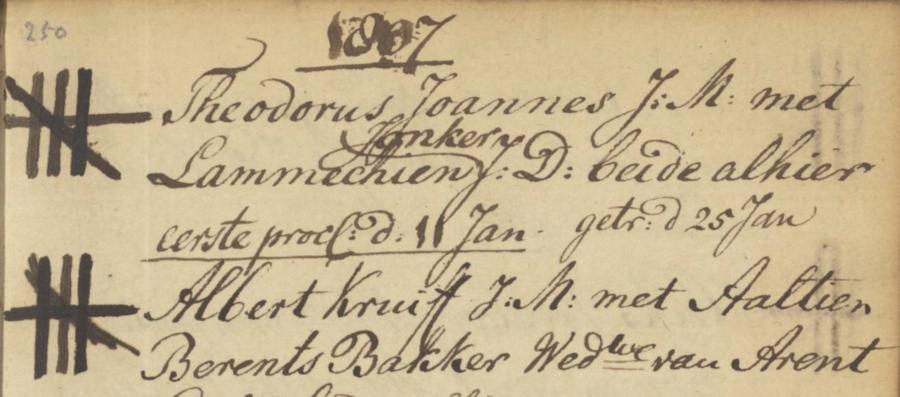 250
1807
Theodorus Joannes J: M: met
Jonker
Lammechien J: D: beide alhier
eerste procl: d: 11 Jan. getr: d 25 Jan
Albert Kruijff J: M: met Aaltien
Berents Bakker Wed<sup>we</sup> van Arent